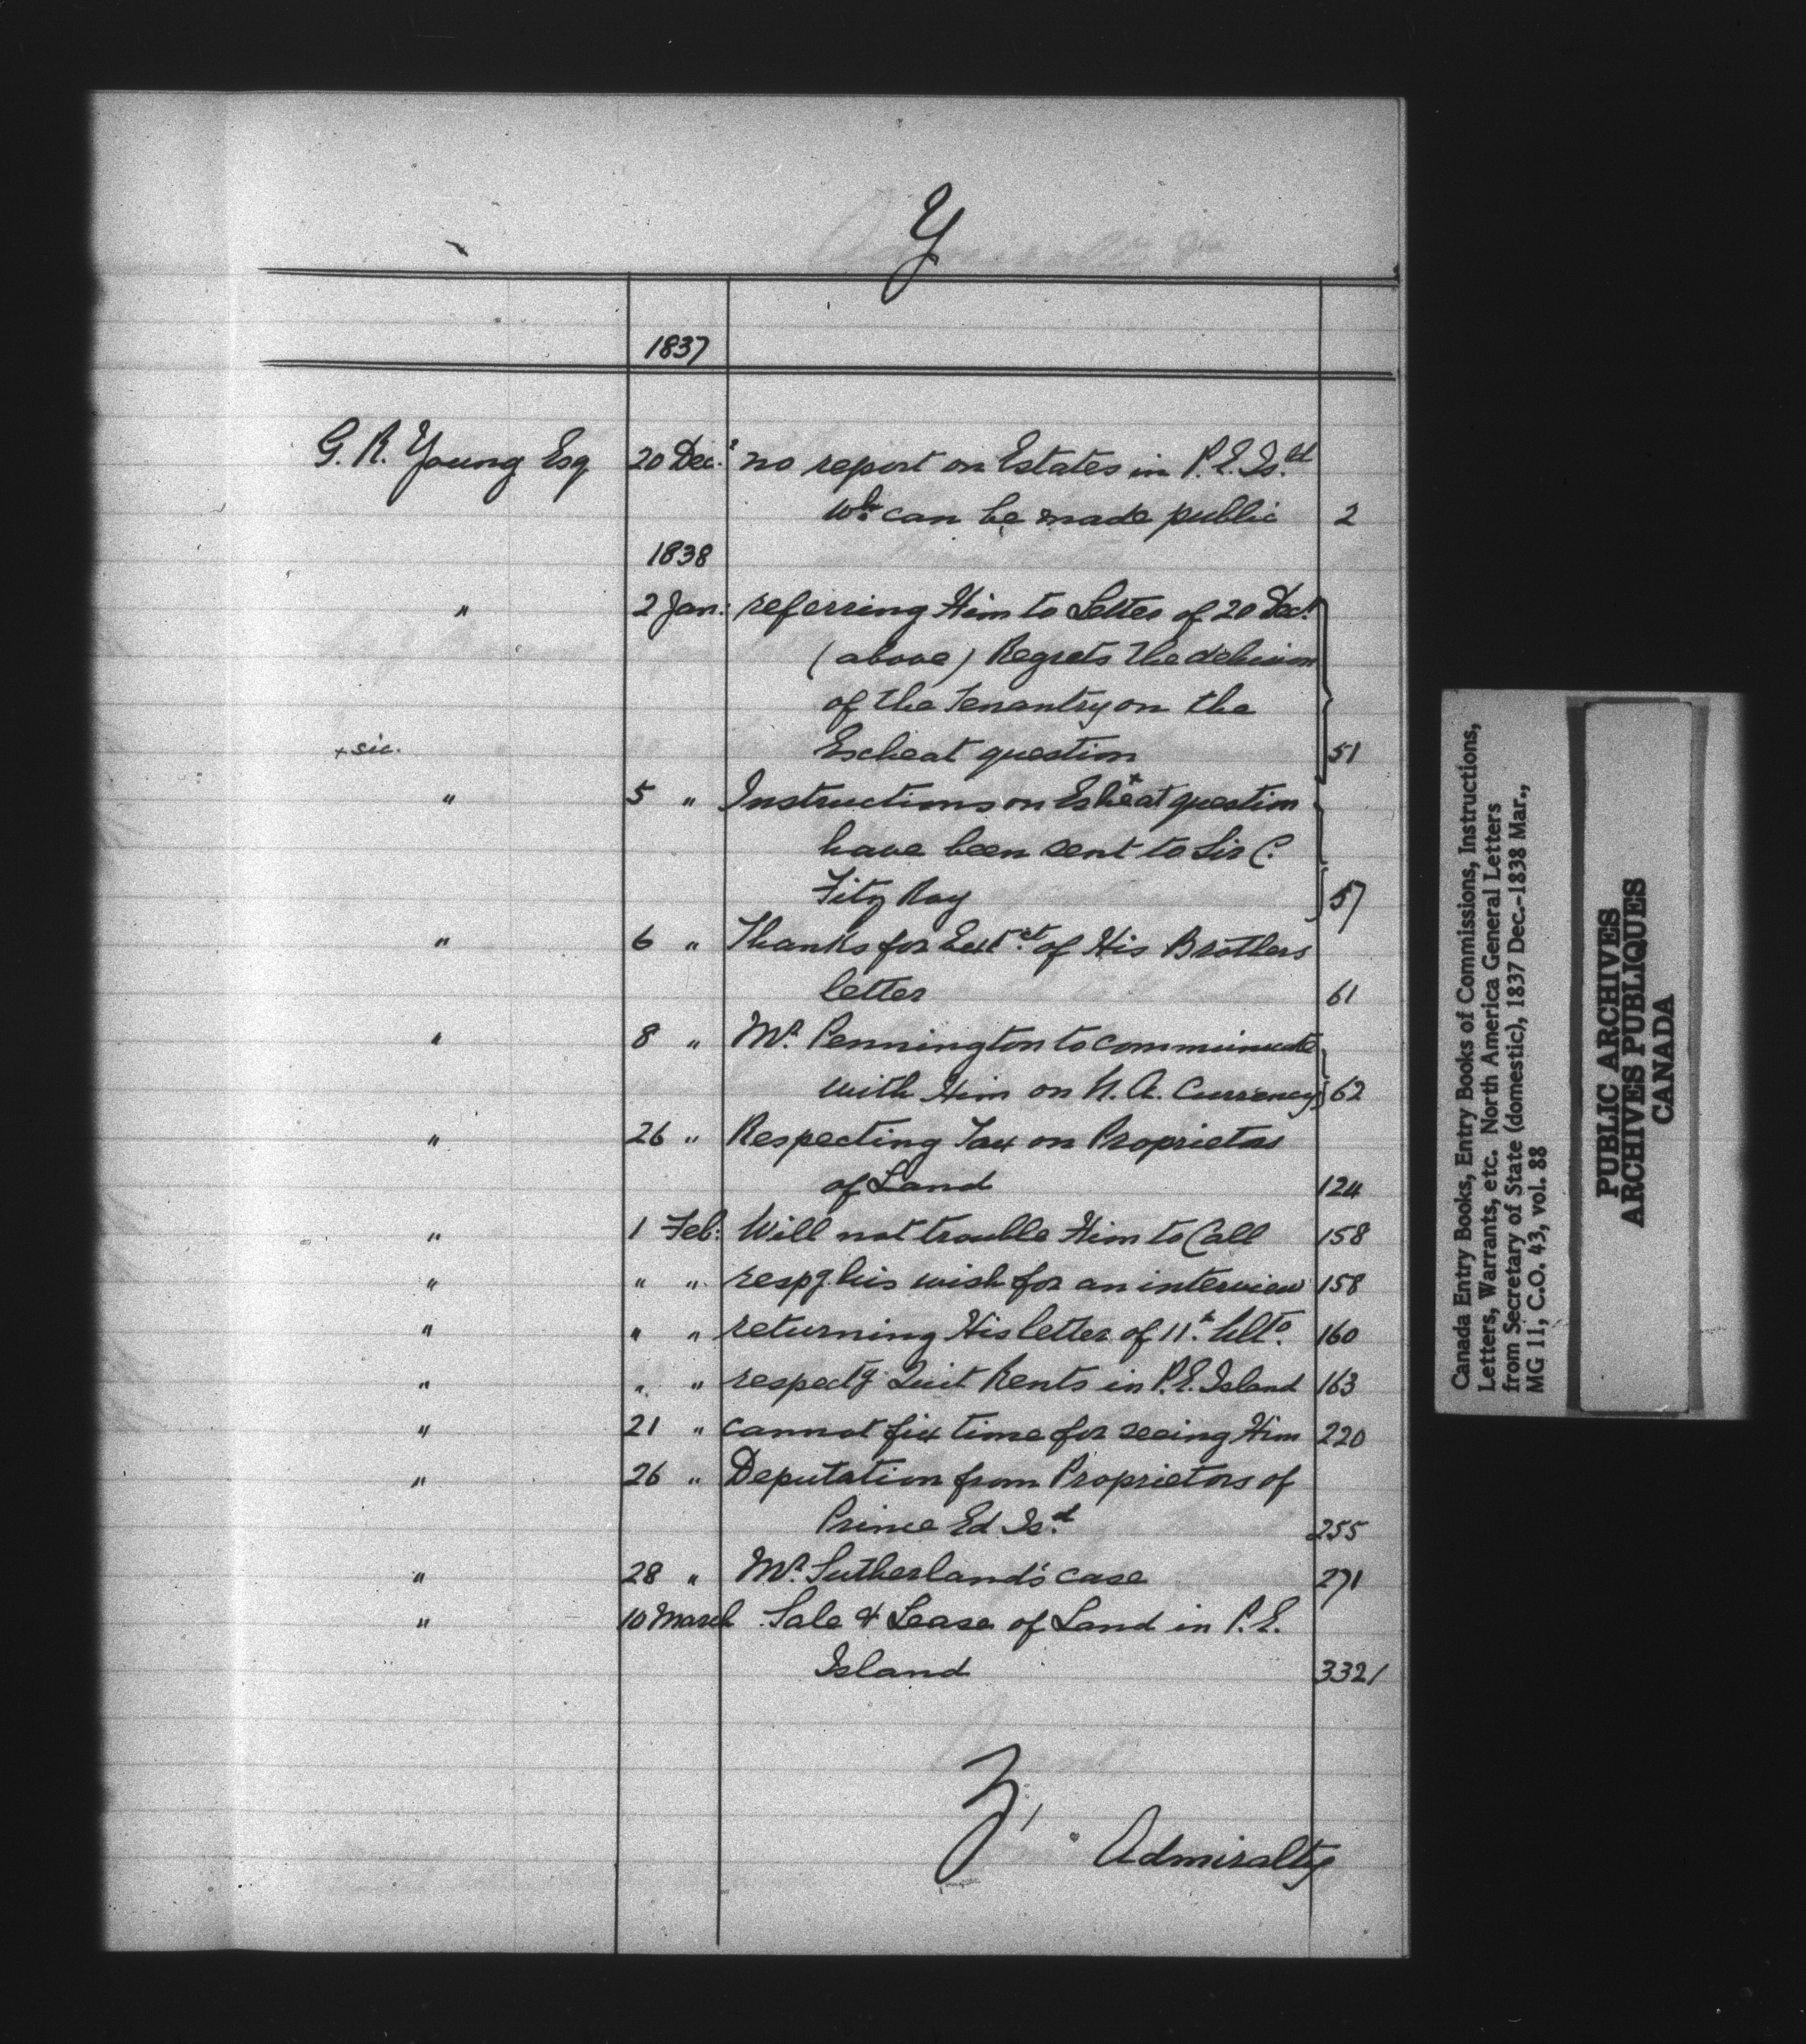 Y
1837
G. R. Young Esq 20 Decr no report on Estates in P. E. Isld
wh can be made public 2
1838
" 2 Jan: referring Him to Letter of 20 Decr
(above) Regrets the delusion
of the Tenantry on the
+ sic. Escheat question 51
" 5 " Instructions on Esheat* question
have been sent to Sir C.
Fitz Roy 57
" 6 " Thanks for Extct of His Brothers
letter 61
" 8 " Mr. Pennington to communicate
with Him on N. A. Currency 62
" 26 " Respecting Tax on Proprietors
of Land 124
" 1 Feb: Will not trouble Him to Call 158
" " " respg his wish for an interview 158
" " " returning His letter of 11th Ulto. 160
" " " respectg Quit Rents in P. E. Island 163
" 21 " cannot fix time for seeing Him 220
" 26 " Deputation from Proprietors of
Prince Ed Isd 255
" 28 " Mr. Sutherland's case 271
" 10 March Sale & Lease of Land in P. E.
Island 332/
Z
Admiralty
Canada Entry Books, Entry Books of Commissions, Instructions,
Letters, Warrants, etc. North America General Letters
from Secretary of State (domestic), 1837 Dec.-1838 Mar.,
MG 11, C.O. 43, vol. 88
PUBLIC ARCHIVES
ARCHIVES PUBLIQUES
CANADA